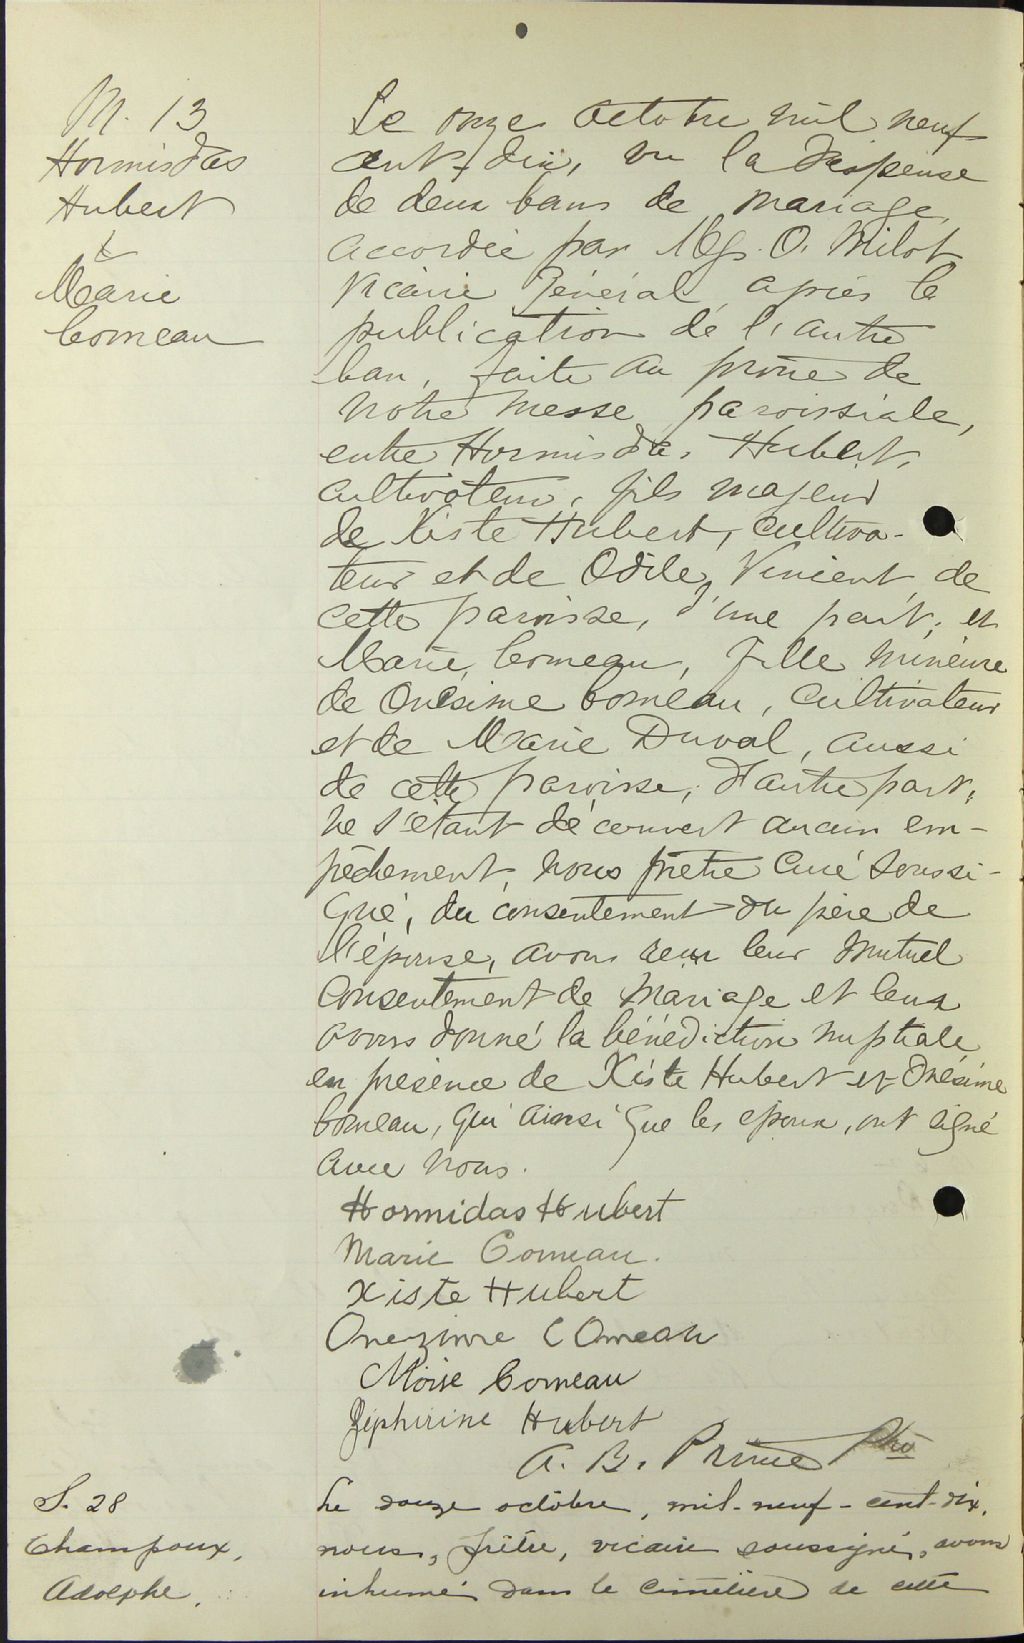 M. 13
Hormisdas
Hubert
&
Marie
Comeau
Le onze octobre mil neuf
cent-dix, vu la dispense
de deux bans de mariage
accordée par Mgr. O. Milot
Vicaire Général, après la
publication de l'autre
ban, faite au prône de
notre messe paroissiale,
entre Hormisdas Hubert,
cultivateur, fils majeur
de Xiste Hubert, cultiva-
teur et de Odile Vincent, de
cette paroisse, d'une part; et
Marie Comeau, fille mineure
de Onésime Comeau, cultivateur
et de Marie Duval, aussi
de cette paroisse, d'autre part,
ne s'étant découvert aucun em-
pêchement, nous prêtre curé soussi-
gné, du consentement du père de
l'épouse, avons reçu leur mutuel
consentement de mariage et leur
avons donné la bénédiction nuptiale
en présence de Xiste Hubert et Onésime
Comeau, qui ainsi que les époux, ont signé
avec nous.
Hormidas Hubert
Marie Comeau.
Xiste Hubert
Onezime Comeau
Moïse Comeau
Zéphirine Hubert
A. B. Ptre
S. 28
Champoux,
Adolphe.
Le douze octobre, mil-neuf-cent-dix,
nous, prêtre, vicaire soussigné, avons
inhumé dans le cimetière de cette